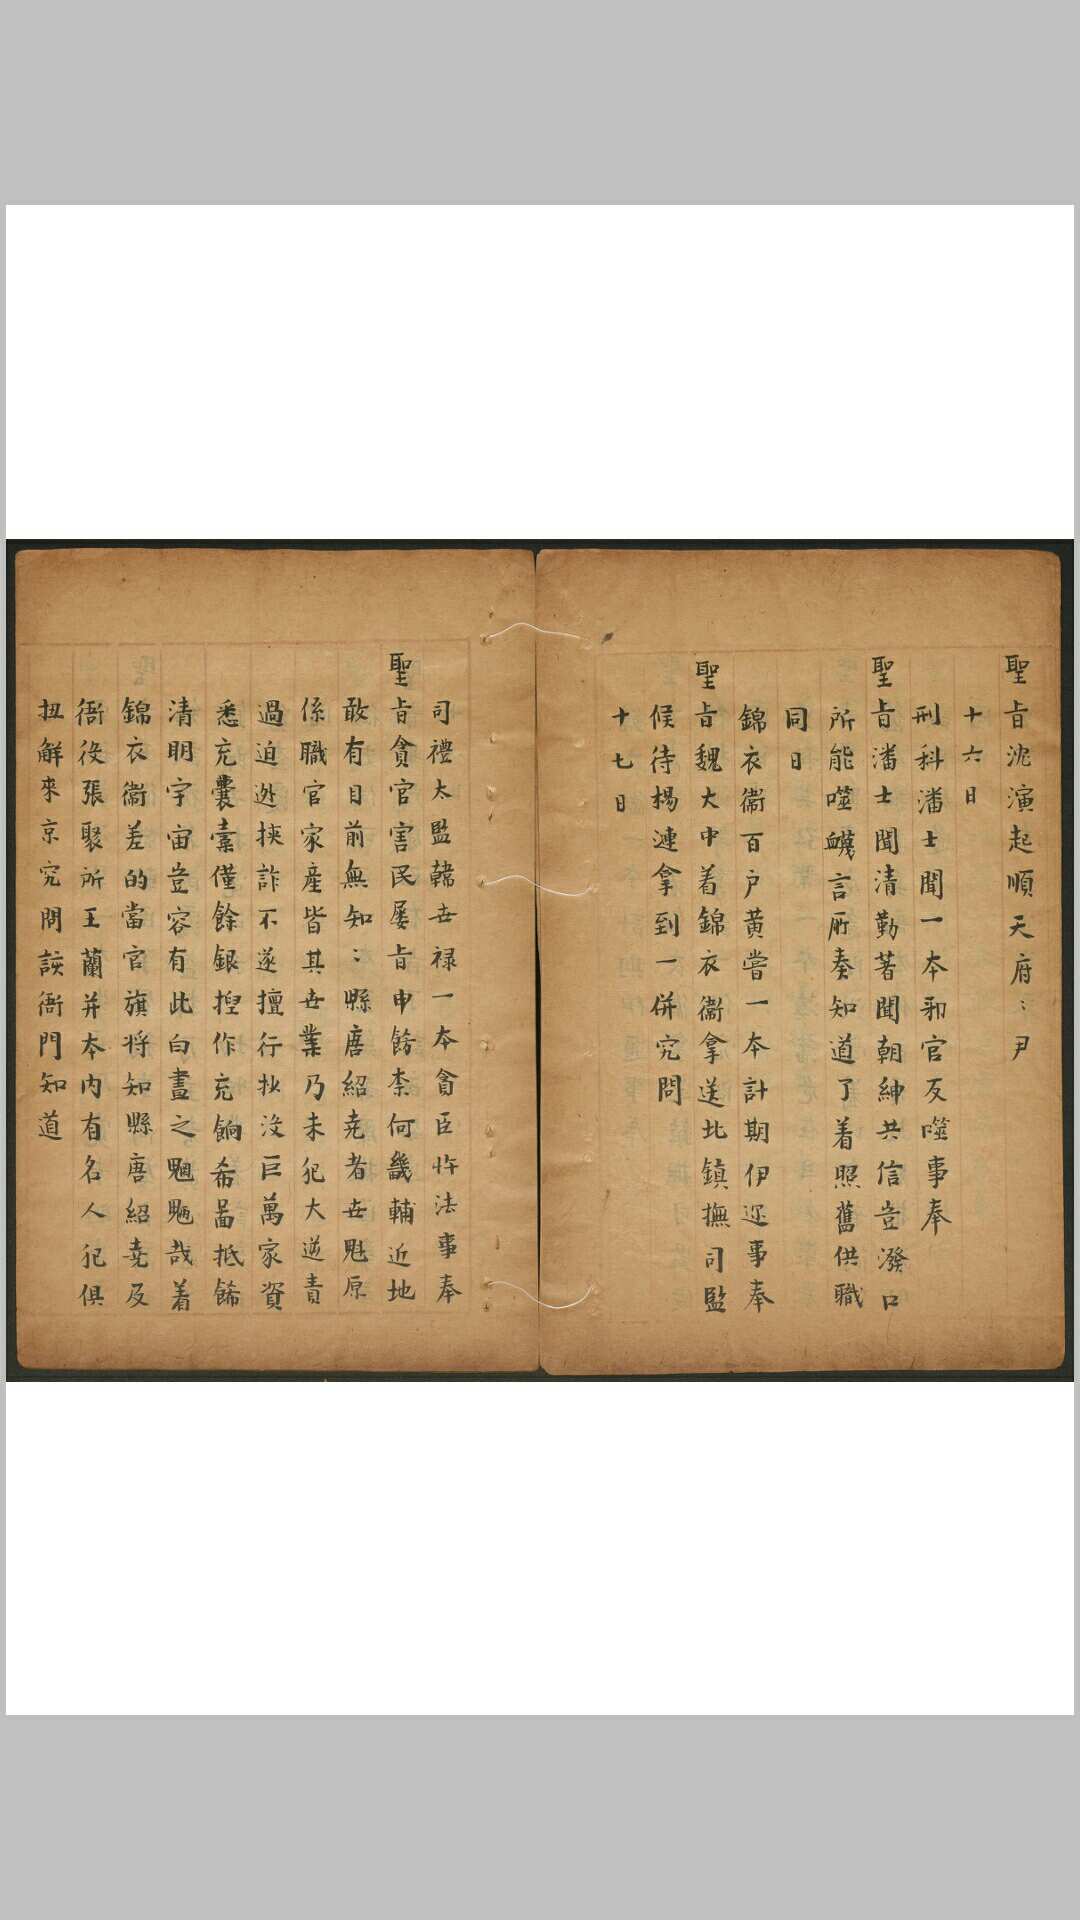 聖旨沈演起順天府〻尹
十六日
刑科潘士聞一本邪官反噬事奉
聖旨潘士聞清勤著聞朝紳共信豈潑口
所能噬衊言所奏知道了着照舊供職
同日
錦衣衛百户黄嘗一本計期伊迩事奉
聖旨魏大中着錦衣衛拿送北鎮撫司監
候待楊漣拿到一併究問
十七日
司禮太監韓世禄一本貪臣忤法事奉
聖旨貪官害民屡旨申飭柰何畿輔近地
敢有目前無知〻縣唐紹堯者世魁原
係職官家產皆其世業乃未犯大逆責
過迫迯挟詐不遂擅行抄没巨萬家資
悉充囊橐僅餘銀揑作充餉希啚抵餙
清明宇宙豈容有此白晝之魍魎哉着
錦衣衛差的當官旗将知縣唐紹堯及
衙役張聚所王蘭并本内有名人犯俱
扭解來京究問該衙門知道